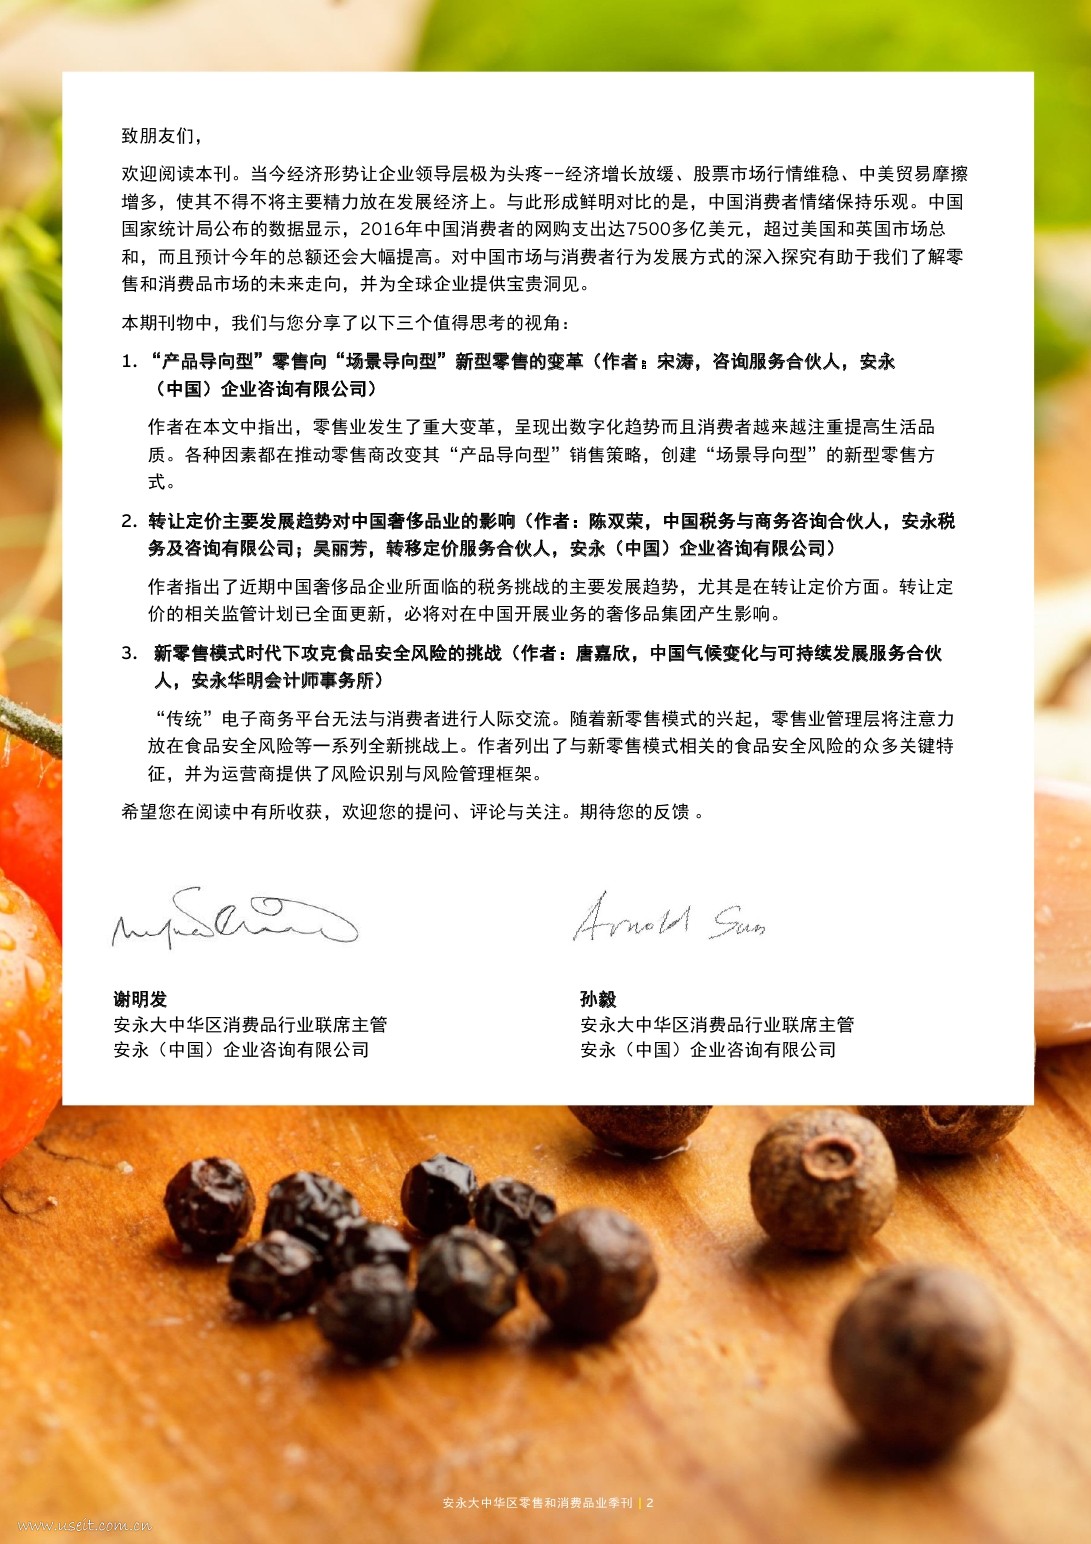 致朋友们，
欢迎阅读本刊。当今经济形势让企业领导层极为头疼--经济增长放缓、股票市场行情维稳、中美贸易摩擦
增多，使其不得不将主要精力放在发展经济上。与此形成鲜明对比的是，中国消费者情绪保持乐观。中国
国家统计局公布的数据显示，2016年中国消费者的网购支出达7500多亿美元，超过美国和英国市场总
和，而且预计今年的总额还会大幅提高。对中国市场与消费者行为发展方式的深入探究有助于我们了解零
售和消费品市场的未来走向，并为全球企业提供宝贵洞见。
本期刊物中，我们与您分享了以下三个值得思考的视角：
1. “产品导向型”零售向“场景导向型”新型零售的变革（作者：宋涛，咨询服务合伙人，安永
（中国）企业咨询有限公司）
作者在本文中指出，零售业发生了重大变革，呈现出数字化趋势而且消费者越来越注重提高生活品
质。各种因素都在推动零售商改变其“产品导向型”销售策略，创建“场景导向型”的新型零售方
式。
2. 转让定价主要发展趋势对中国奢侈品业的影响（作者：陈双荣，中国税务与商务咨询合伙人，安永税
务及咨询有限公司；吴丽芳，转移定价服务合伙人，安永（中国）企业咨询有限公司）
作者指出了近期中国奢侈品企业所面临的税务挑战的主要发展趋势，尤其是在转让定价方面。转让定
价的相关监管计划已全面更新，必将对在中国开展业务的奢侈品集团产生影响。
3. 新零售模式时代下攻克食品安全风险的挑战（作者：唐嘉欣，中国气候变化与可持续发展服务合伙
人，安永华明会计师事务所）
“传统”电子商务平台无法与消费者进行人际交流。随着新零售模式的兴起，零售业管理层将注意力
放在食品安全风险等一系列全新挑战上。作者列出了与新零售模式相关的食品安全风险的众多关键特
征，并为运营商提供了风险识别与风险管理框架。
希望您在阅读中有所收获，欢迎您的提问、评论与关注。期待您的反馈 。
Arnold Sun
谢明发
安永大中华区消费品行业联席主管
安永（中国）企业咨询有限公司
孙毅
安永大中华区消费品行业联席主管
安永（中国）企业咨询有限公司
安永大中华区零售和消费品业季刊 | 2
www.useit.com.cn